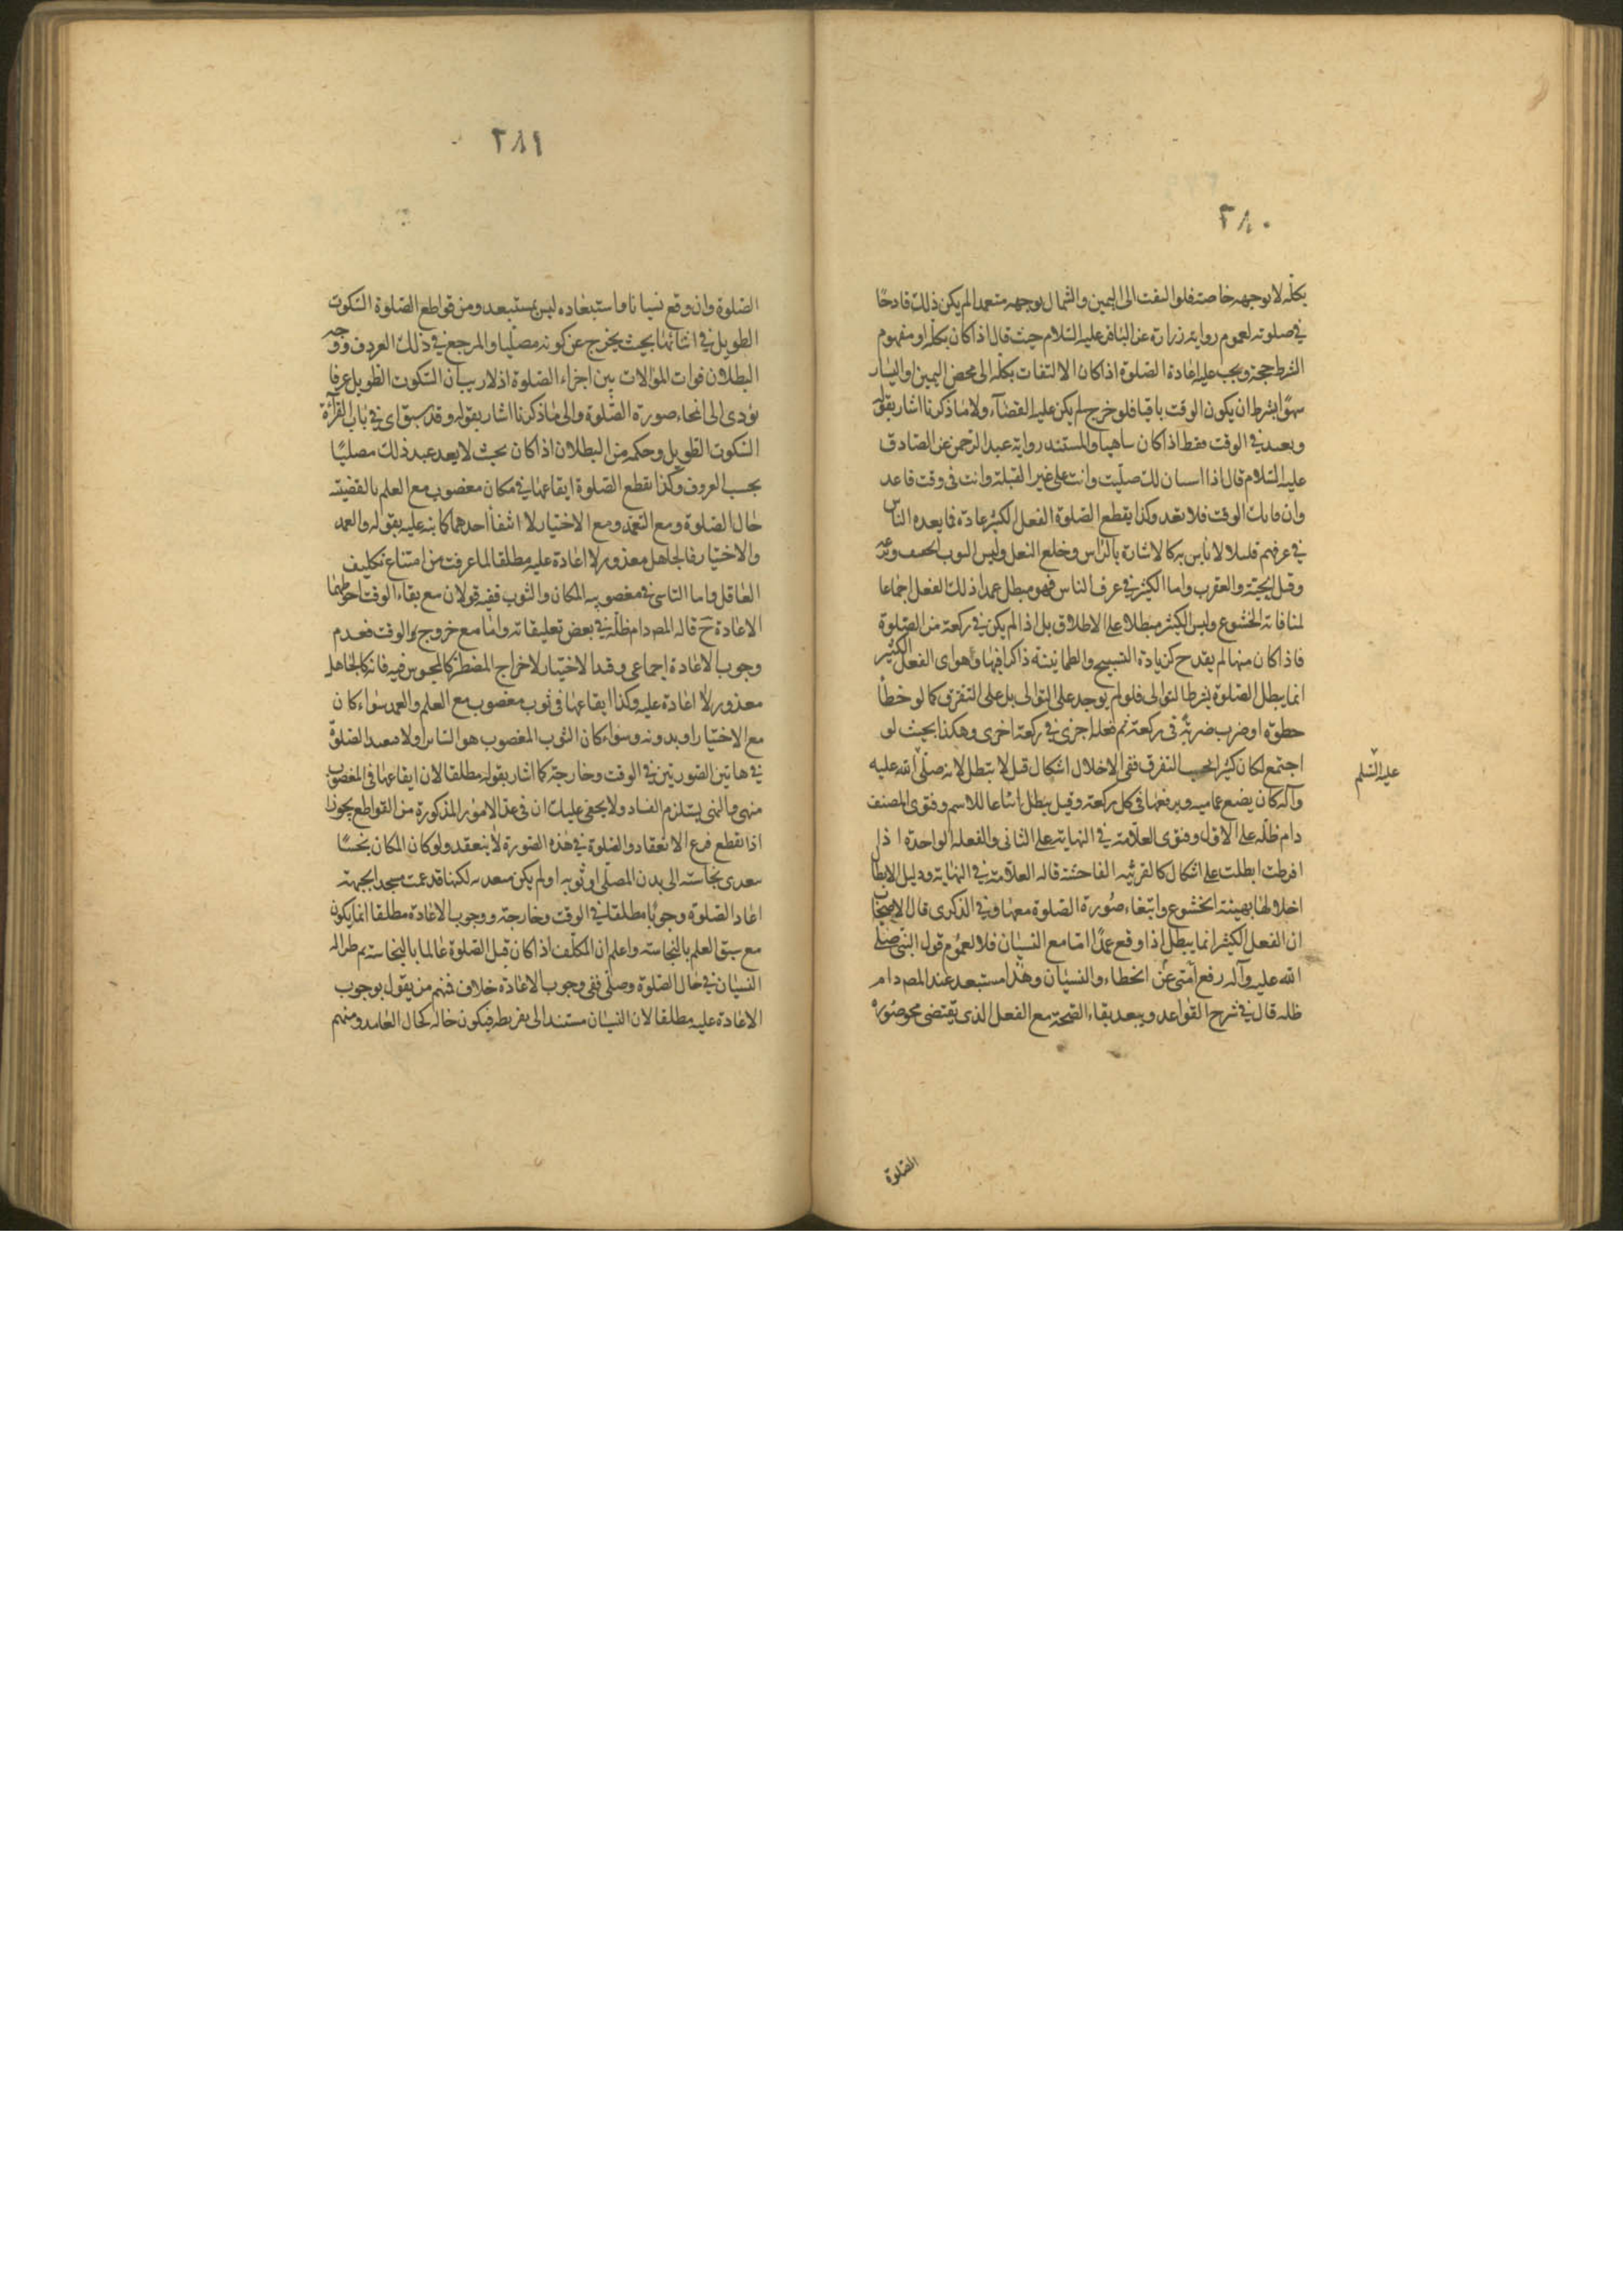 ٢٨٠
بكله لا بوجهه خاصة فلو التفت الى اليمين والشمال بوجهه متعمدا لم يكن ذلك قادحًا
في صلوته لعموم رواية زرارة عن الباقر عليه السلام حيث قال اذا كان بكله او مفهوم
الشرط حجة ويجب عليه اعادة الصلوة اذا كان الالتفات بكله الى محض اليمين او اليسار
سهوًا بشرط ان يكون الوقت باقيا فلو خرج لم يكن عليه القضآء ولا ما ذكرنا اشار بقوله
ويعيد في الوقت فقط اذا كان ساهيا والمستند رواية عبد الرحمن عن الصادق
عليه السلام قال اذا استبان لك صليت وانت على غير القبلة وانت في وقت فاعد
وان فاتك الوقت فلا تعد وكذا يقطع الصلوة الفعل الكثير عادة فما يعده الناس
في عرفهم قليلا لا باس به كالاشارة بالراس وخلع النعل ولبس الثوب الخفيف
وقتل الحية والعقرب واما الكثير في عرف الناس فهو مبطل عمدا ذلك الفعل اجماعا
لمنافاته الخشوع وليس الكثير مبطلا على الاطلاق بل اذا لم يكن في ركعة من الصلوة
فاذا كان منها لم يقدح كزيادة التسبيح والطمانينة ذاكرا فيها وهو اى الفعل الكثير
انما يبطل الصلوة بشرط التوالى فلو لم يوجد على التوالى بل على التفرق كما لو خطأ
خطوة او ضرب ضربة في ركعة ثم فعل اخرى في ركعة اخرى وهكذا بحيث لو
اجتمع لكان كثيرا بحسب التفرق ففى الاخلال اشكال قيل لا يتطل لانه صلى الله عليه
عليه السلم
وآله كان يضع عماميه ويرفعها في كل ركعة وقيل يبطل اتباعا للاسم وفتوى المصنف
دام ظله على الاول وفتوى العلامة في النهاية على الثانى والفعلة الواحدة اذا
افرطت ابطلت على اشكال كالفاحشة قاله العلامة في النهاية ودليل الابطال
اخلالها بهيئة الخشوع وانتفاء صورة الصلوة معها وفي الذكرى قال الاصحاب
ان الفعل الكثير انما يبطل اذا وقع عمدًا اما مع النسيان فلا لعموم قول النبى صلى
الله عليه وآله رفع عن امتى الخطاء والنسيان وهذا مستبعد عند المص دام
ظله قال في شرح القواعد ويبعد بقاء الصحة مع الفعل الذى يقتضى محو صورة
الصلوة
٢٨١
الصلوة وان وقع نسيانا وما استبعاده ليس بمستبعد ومن قواطع الصلوة السكوت
الطويل في اثنائها بحيث يخرج عن كونه مصليا والمرجع في ذلك العرف ووجه
البطلان فوات الموالات بين اجزاء الصلوة اذ لا ريب ان السكوت الطويل عرفا
يؤدى الى انمحاء صورة الصلوة والى ما ذكرنا اشار بقوله وقد سبق اى في باب القرآءة
السكوت الطويل وحكمه من البطلان اذا كان بحيث لا يعد عند ذلك مصليًا
بحسب العرف وكذا يقطع الصلوة ايقاعها في مكان مغصوب مع العلم بالقضية
حال الصلوة ومع التعمد ومع الاختيار لا انتفاء احدهما كما نبه عليه بقوله والعمد
والاختيار فالجاهل معذور لا اعادة عليه مطلقا لما عرفت من امتناع تكليف
الغافل واما الناسى في مغصوبية المكان والثوب ففيه قولان مع بقاء الوقت احوطهما
الاعادة ح قاله المص دام ظله في بعض تعليقاته واما مع خروج الوقت فعدم
وجوب الاعادة اجماعى وقيد الاختيار لاخراج المضطر كالمحبوس فيه فانه كالجاهل
معذور لا اعادة عليه وكذا ايقاعها في ثوب مغصوب مع العلم والعمد سواء كان
مع الاختيار او بدونه وسواء كان الثوب المغصوب هو الساتر او لا فيعيد الصلوة
في هاتين الصورتين في الوقت وخارجه كما اشار بقوله مطلقا لان ايقاعها في المغصوب
منهى والنهى يستلزم الفساد ولا يخفى عليك ان في عد الامور المذكورة من القواطع تجوزا
اذ القطع فرع الانعقاد والصلوة في هذه الصورة لا ينعقد ولو كان المكان نجسًا
تتعدى نجاسته الى بدن المصلى او ثوبه او لم يكن متعدية لكنها قد عمت مسجد الجبهة
اعاد الصلوة وجوبًا مطلقا في الوقت وخارجه ووجوب الاعادة مطلقا انما يكون
مع سبق العلم بالنجاسة واعلم ان المكلف اذا كان قبل الصلوة عالما بالنجاسة ثم طرا له
النسيان في حال الصلوة وصلى ففى وجوب الاعادة خلاف فمنهم من يقول بوجوب
الاعادة عليه مطلقا لان النسيان مستند الى تفريطه فيكون حاله كحال العامد ومنهم